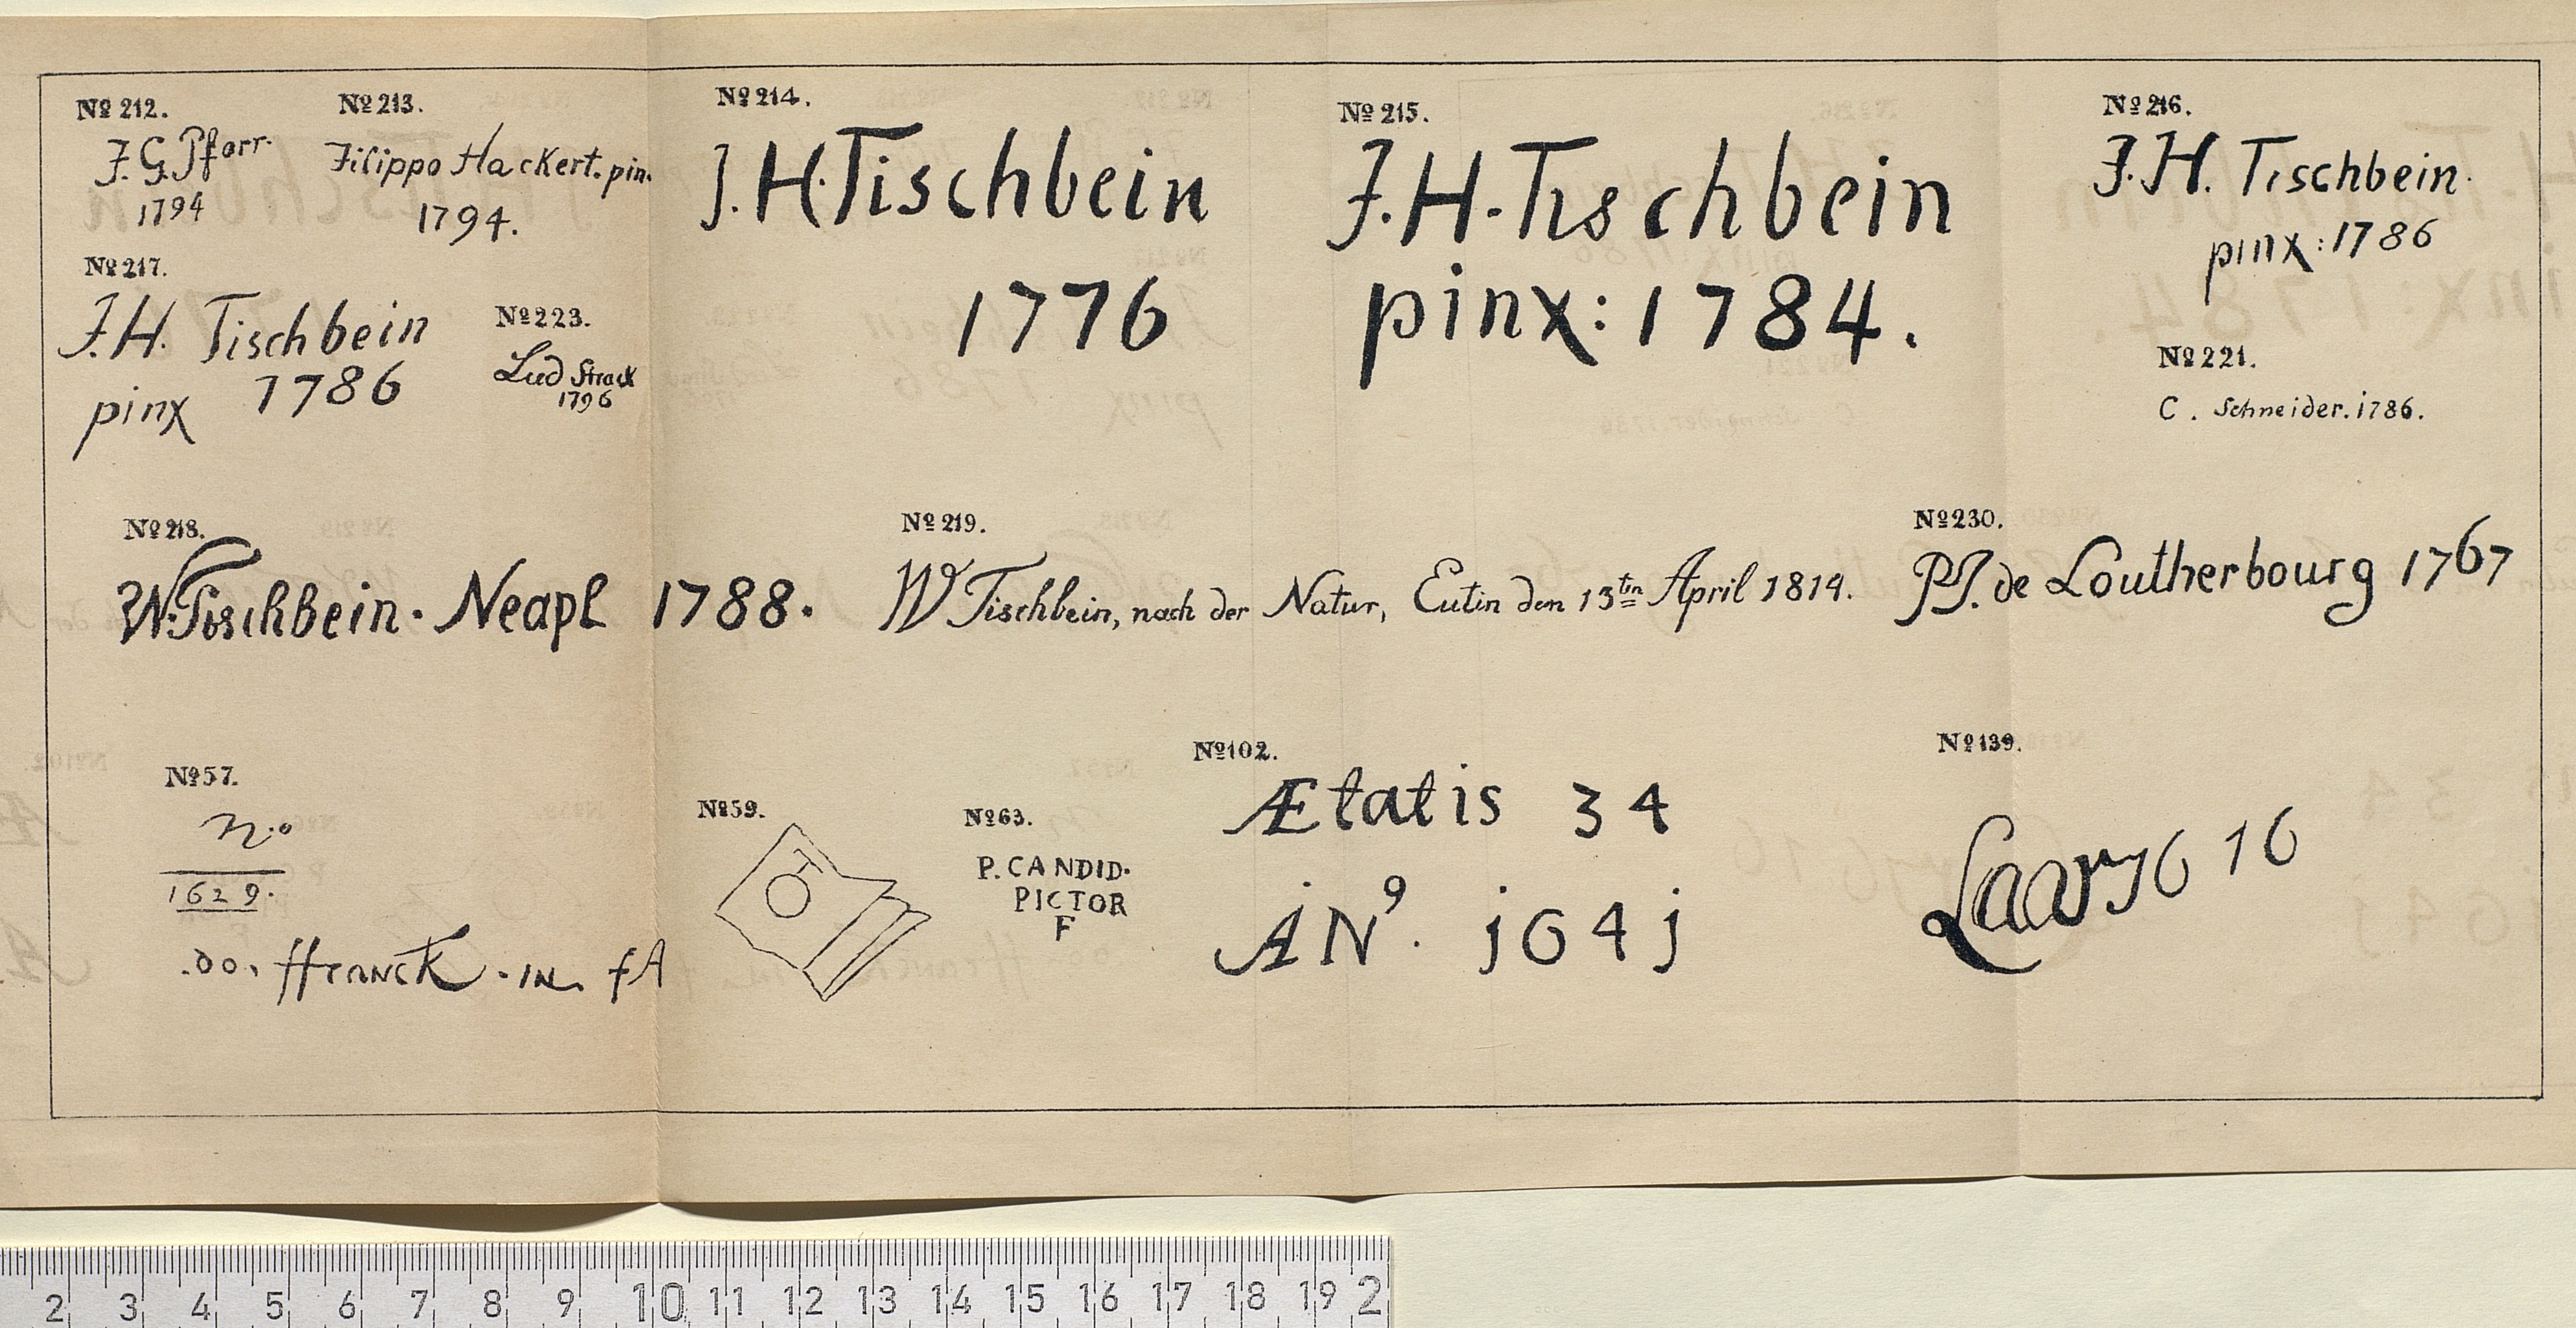 Nº 212.
J. G. Pfarr.
1794
Nº 213.
Filippo Hackert. pin.
1794.
Nº 214.
J. H. Tischbein
1776
Nº 215.
J. H. Tischbein
pinx: 1784.
Nº 216.
J. H. Tischbein.
pinx: 1786
Nº 217.
J. H. Tischbein
pinx 1786
Nº 223.
Lud Strack
1796
Nº 221.
C. Schneider. 1786.
Nº 218.
W. Tischbein. Neapl 1788.
Nº 219.
W Tischbein, nach der Natur, Eutin den 13ten April 1814.
Nº 230.
P. J. de Loutherbourg 1767
Nº 57.
n.o
1629.
.do. ffranck. in. fA
Nº 59.
Nº 63.
P. CANDID.
PICTOR
F
Nº 102.
Ætatis 34
AN9. j64j
Nº 139.
2 3 4 5 6 7 8 9 10 11 12 13 14 15 16 17 18 19 2